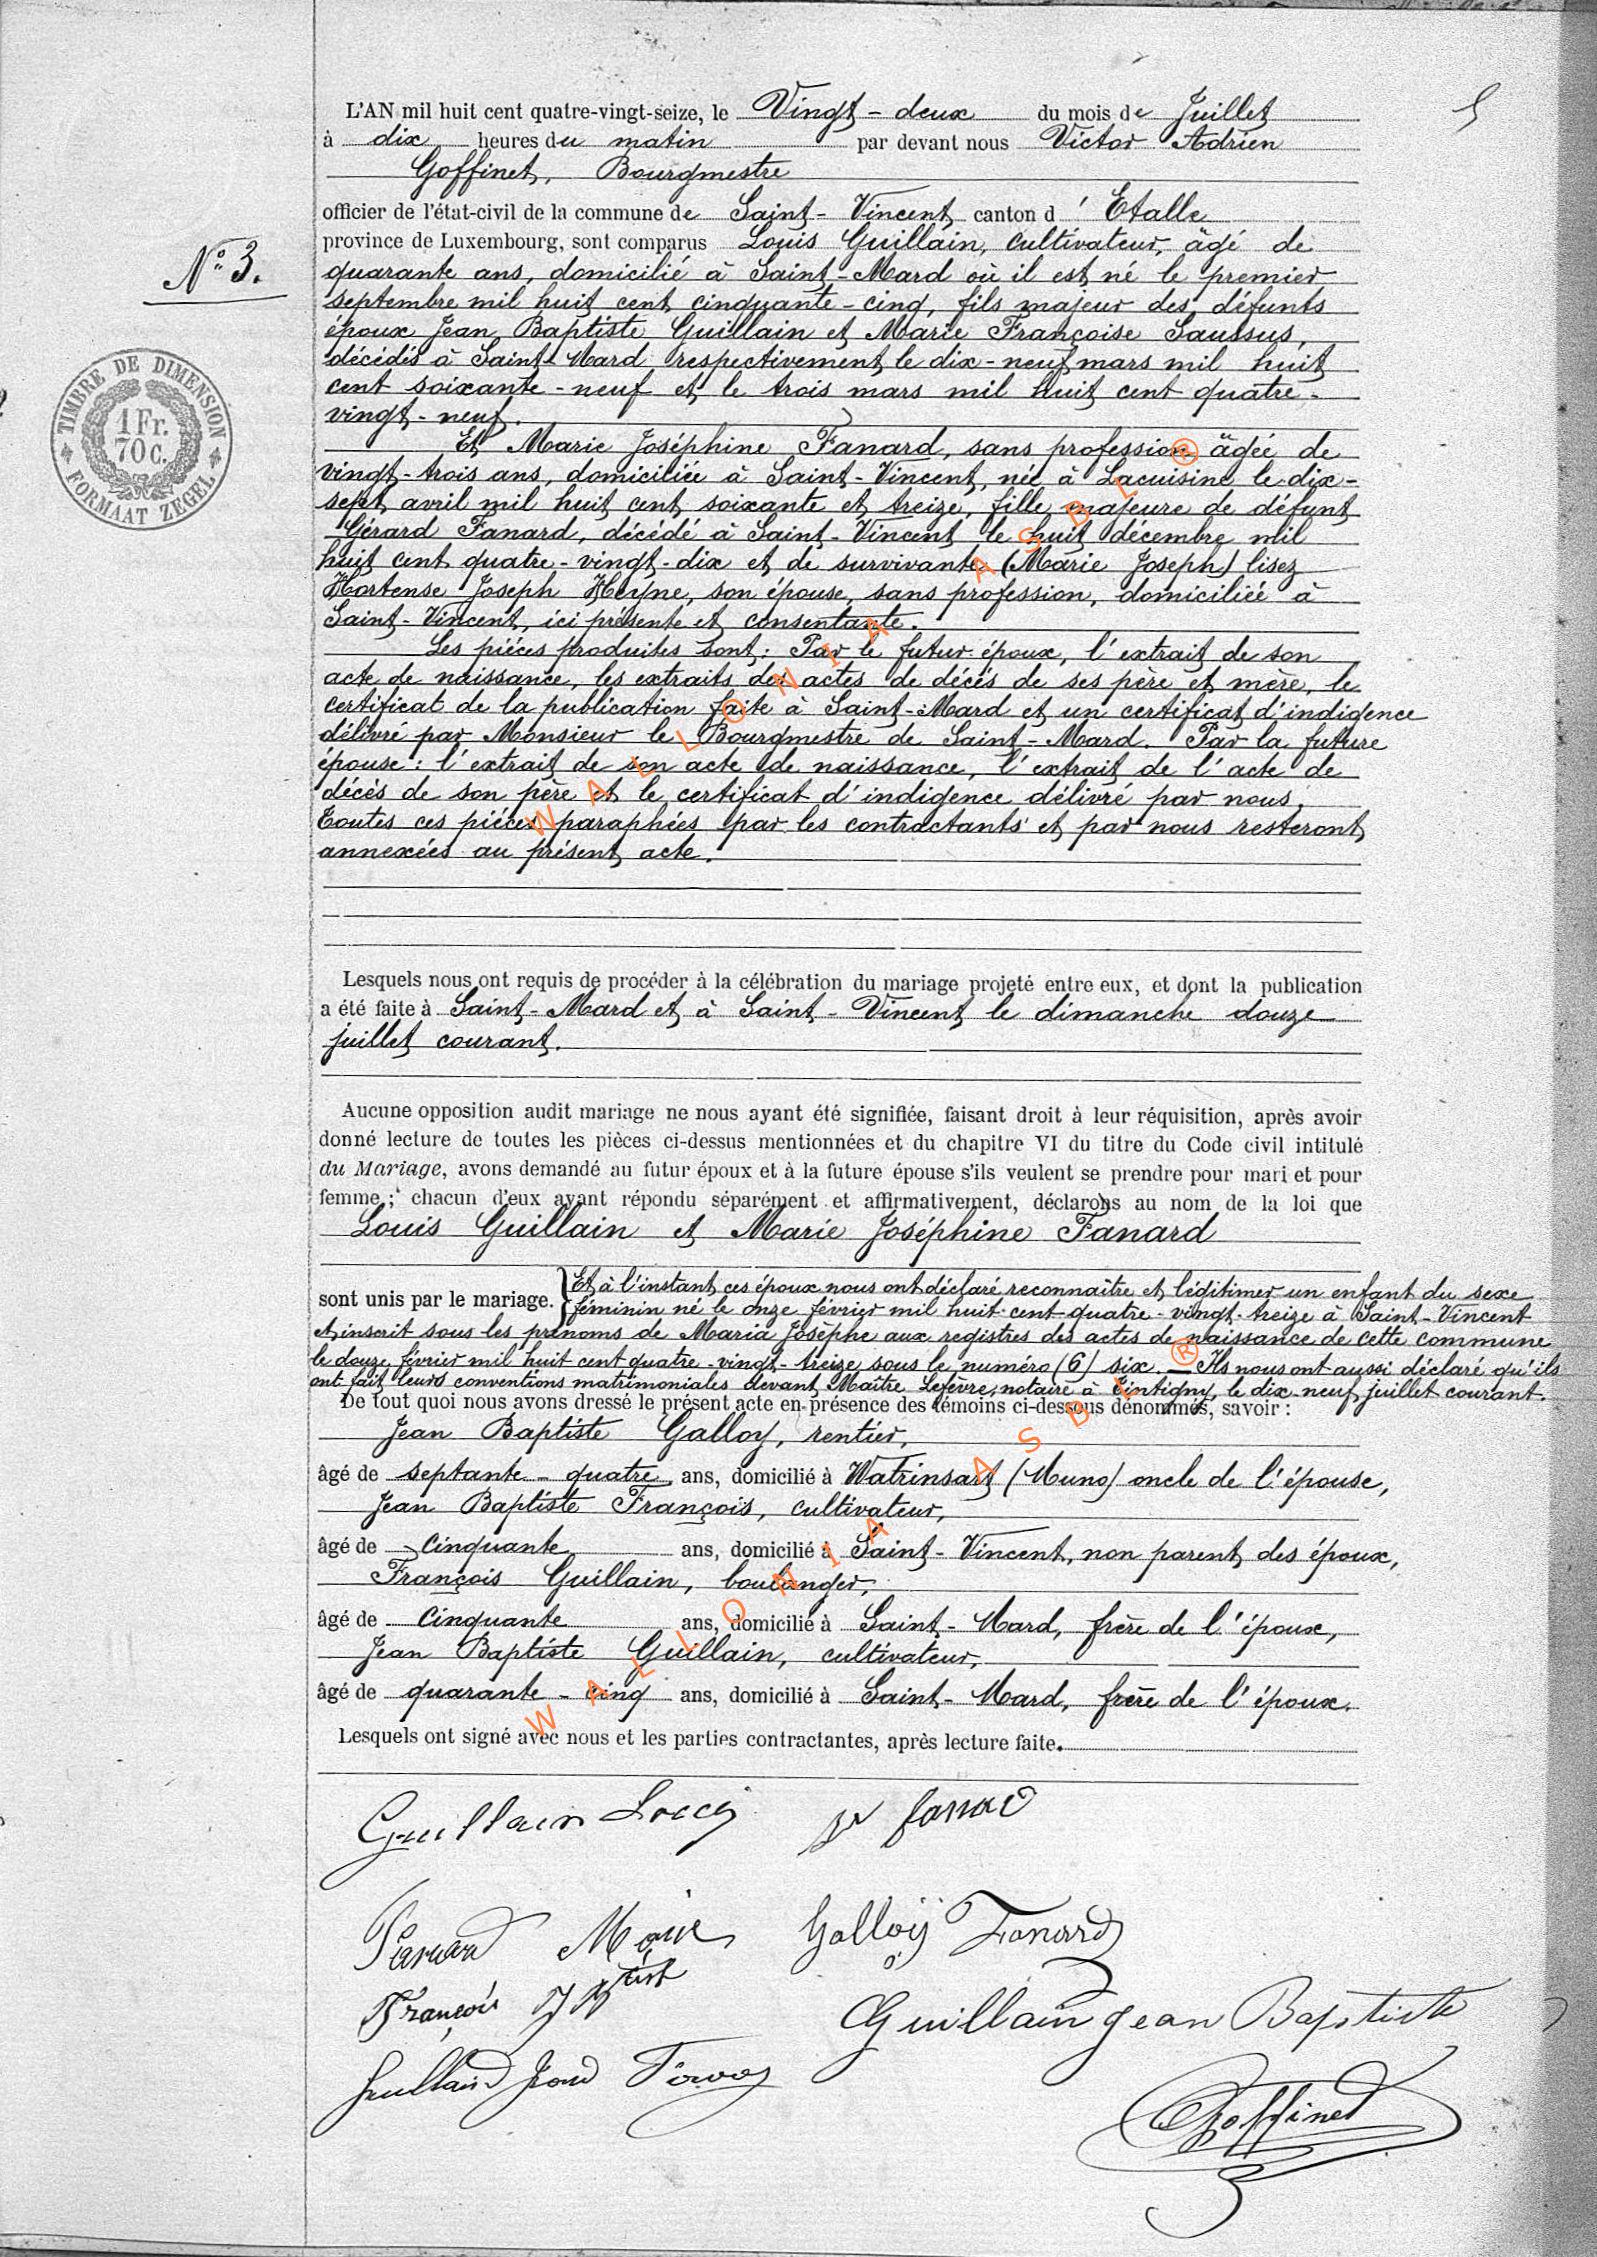 L'AN mil huit cent quatre-vingt-seize, le Vingt-deux du mois de Juillet
à dix heures du matin par devant nous Victor Adrien
Goffinet, Bourgmestre
officier de l'état-civil de la commune de Saint-Vincent canton d'Etalle
province de Luxembourg, sont comparus Louis Guillain, cultivateur, âgé de
N° 3.
quarante ans, domicilié à Saint-Mard où il est né le premier
septembre mil huit cent cinquante-cinq, fils majeur des défunts
époux Jean Baptiste Guillain et Marie Françoise Saussus,
décédés à Saint-Mard respectivement le dix-neuf mars mil huit
cent soixante-neuf et le trois mars mil huit cent quatre-
vingt-neuf.
TIMBRE DE DIMENSION
1 Fr.
70 c.
FORMAAT ZEGEL
Et Marie Joséphine Fanard, sans profession âgée de
vingt-trois ans, domiciliée à Saint-Vincent, née à Lacuisine le dix-
sept avril mil huit cent soixante et treize, fille majeure de défunt
Gérard Fanard, décédé à Saint-Vincent le huit décembre mil
huit cent quatre-vingt-dix et de survivante (Marie Joseph) lisez
Hortense Joseph Heyne, son épouse, sans profession, domiciliée à
Saint-Vincent, ici présente et consentante.
Les pièces produites sont: Par le futur époux, l'extrait de son
acte de naissance, les extraits des actes de décés de ses père et mère, le
certificat de la publication faite à Saint-Mard et un certificat d'indigence
délivré par Monsieur le Bourgmestre de Saint-Mard. Par la future
épouse: l'extrait de son acte de naissance, l'extrait de l'acte de
décès de son père et le certificat d'indigence délivré par nous.
Toutes ces pièces paraphées par les contractants et par nous resteront
annexées au présent acte.
Lesquels nous ont requis de procéder à la célébration du mariage projeté entre eux, et dont la publication
a été faite à Saint-Mard et à Saint-Vincent le dimanche douze
juillet courant.
Aucune opposition audit mariage ne nous ayant été signifiée, faisant droit à leur réquisition, après avoir
donné lecture de toutes les pièces ci-dessus mentionnées et du chapitre VI du titre du Code civil intitulé
du Mariage, avons demandé au futur époux et à la future épouse s'ils veulent se prendre pour mari et pour
femme; chacun d'eux ayant répondu séparément et affirmativement, déclarons au nom de la loi que
Louis Guillain et Marie Joséphine Fanard
sont unis par le mariage. Et à l'instant ces époux nous ont déclaré reconnaître et légitimer un enfant du sexe
féminin né le onze février mil huit-cent-quatre-vingt-treize à Saint-Vincent
et inscrit sous les prénoms de Maria Josèphe aux registres des actes de naissance de cette commune
le douze février mil huit cent quatre-vingt-treize sous le numéro (6) six. — Ils nous ont aussi déclaré qu'ils
ont fait leurs conventions matrimoniales devant Maître Lefèvre, notaire à Tintigny, le dix-neuf juillet courant.
De tout quoi nous avons dressé le présent acte en présence des témoins ci-dessous dénommés, savoir :
Jean Baptiste Galloy, rentier,
âgé de septante-quatre ans, domicilié à Watrinsart (Muno) oncle de l'épouse,
Jean Baptiste François, cultivateur,
âgé de cinquante ans, domicilié à Saint-Vincent, non parent des époux,
François Guillain, boulanger,
âgé de cinquante ans, domicilié à Saint-Mard, frère de l'époux,
Jean Baptiste Guillain, cultivateur,
âgé de quarante-cinq ans, domicilié à Saint-Mard, frère de l'époux.
Lesquels ont signé avec nous et les parties contractantes, après lecture faite.
WALLONIA ASBL ®
WALLONIA ASBL ®
Guillain Louis
Galloy Fanard
François
Guillain Jean Baptiste
Goffinet